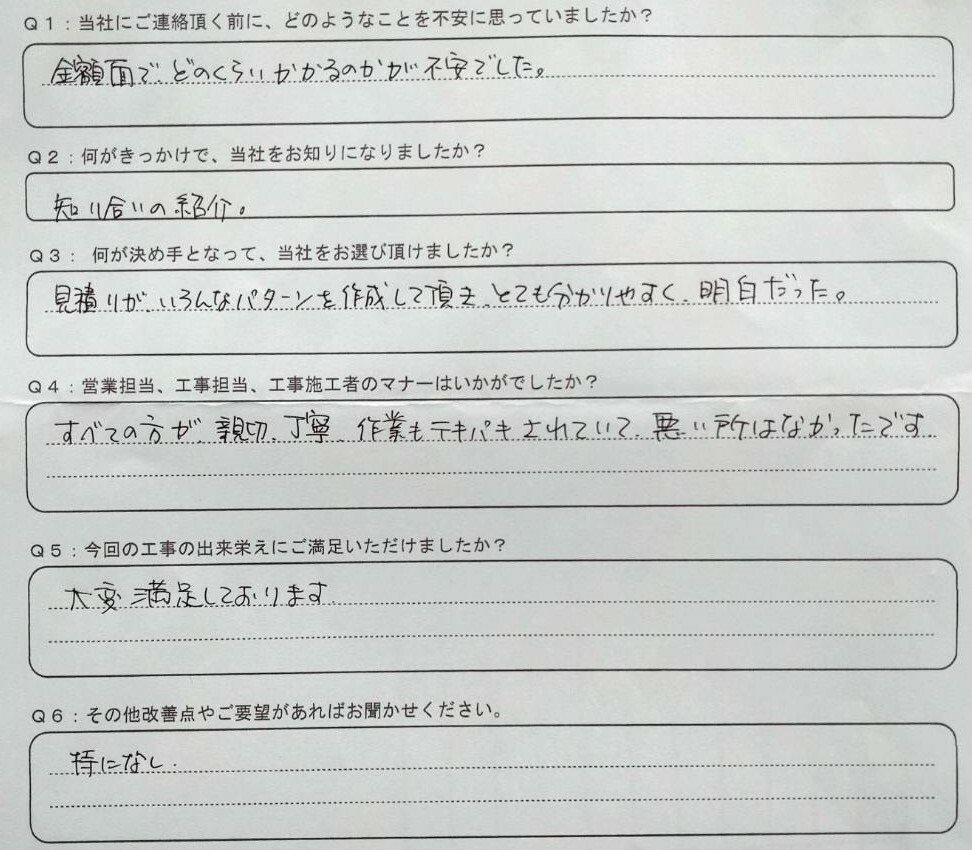 Q1：当社にご連絡頂く前に、どのようなことを不安に思っていましたか？
金額面で、どのくらいかかるのかが不安でした。
Q2：何がきっかけで、当社をお知りになりましたか？
知り合いの紹介。
Q3： 何が決め手となって、当社をお選び頂けましたか？
見積りが、いろんなパターンを作成して頂き、とても分かりやすく、明白だった。
Q4：営業担当、工事担当、工事施工者のマナーはいかがでしたか？
すべての方が、親切、丁寧、作業もテキパキされていて、悪い所はなかったです
Q5：今回の工事の出来栄えにご満足いただけましたか？
大変満足しております.
Q6：その他改善点やご要望があればお聞かせください。
特になし.